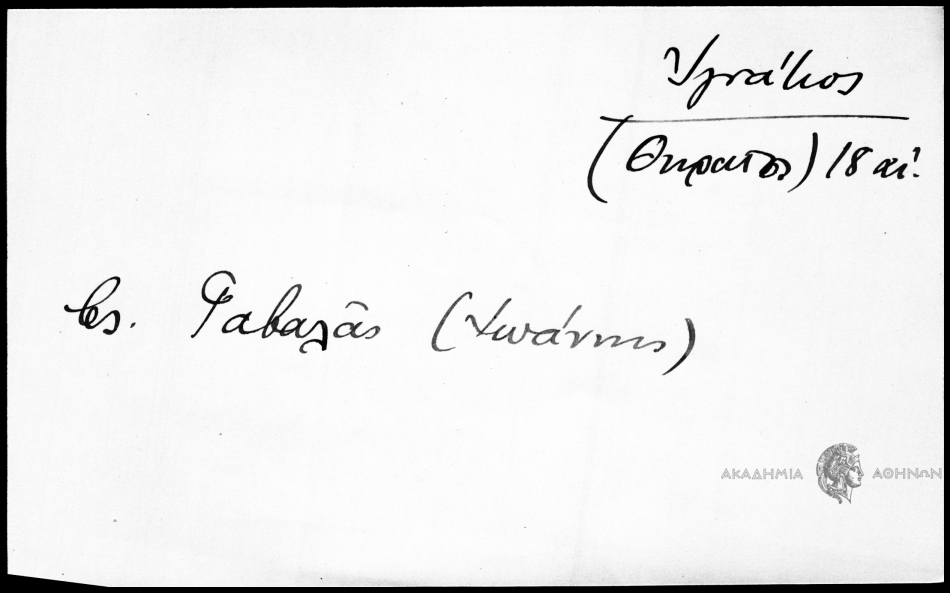 Ἰγνάτιος
(Θηραῖος) 18 αἰ.
βλ. Γαβαλᾶς (Ἰωάννης)
ΑΚΑΔΗΜΙΑ ΑΘΗΝΩΝ